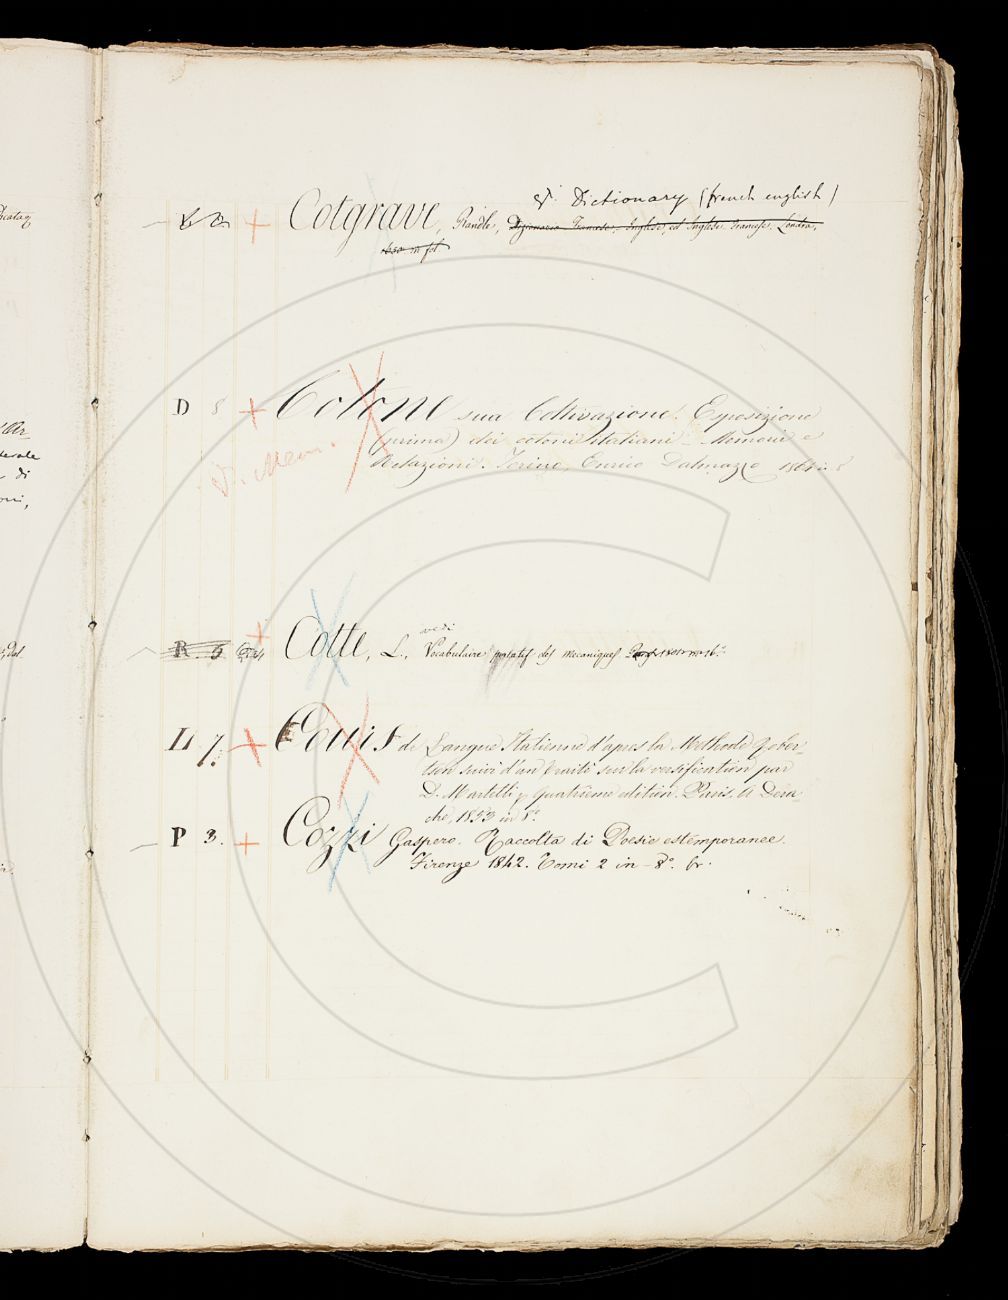 v. Dictionary (french english)
Cotgrave, Randle, Dizionario Francese-Inglese, ed Inglese Francese. Londra,
1650 in fol.
D 8 + Cotone sua Coltivazione. Esposizione
(prima) dei cotoni italiani - Memorie e
Relazioni. Torino, Enrico Dalmazzo 1864 in 8
V. Mem.
vedi
R. 5 + Cotte, L., Vocabulaire portatif des mecaniques
L. 7. + Cours de Langue Italienne d'apres la Methode Rober-
tson suivi d'un traité sur la versification par
D. Martelli, quatrième edition. Paris, A Dera-
che, 1853 in 8°.
P 3. + Cozzi Gaspero. Raccolta di Poesie estemporanee.
Firenze 1842. Tomi 2 in-8°. br.